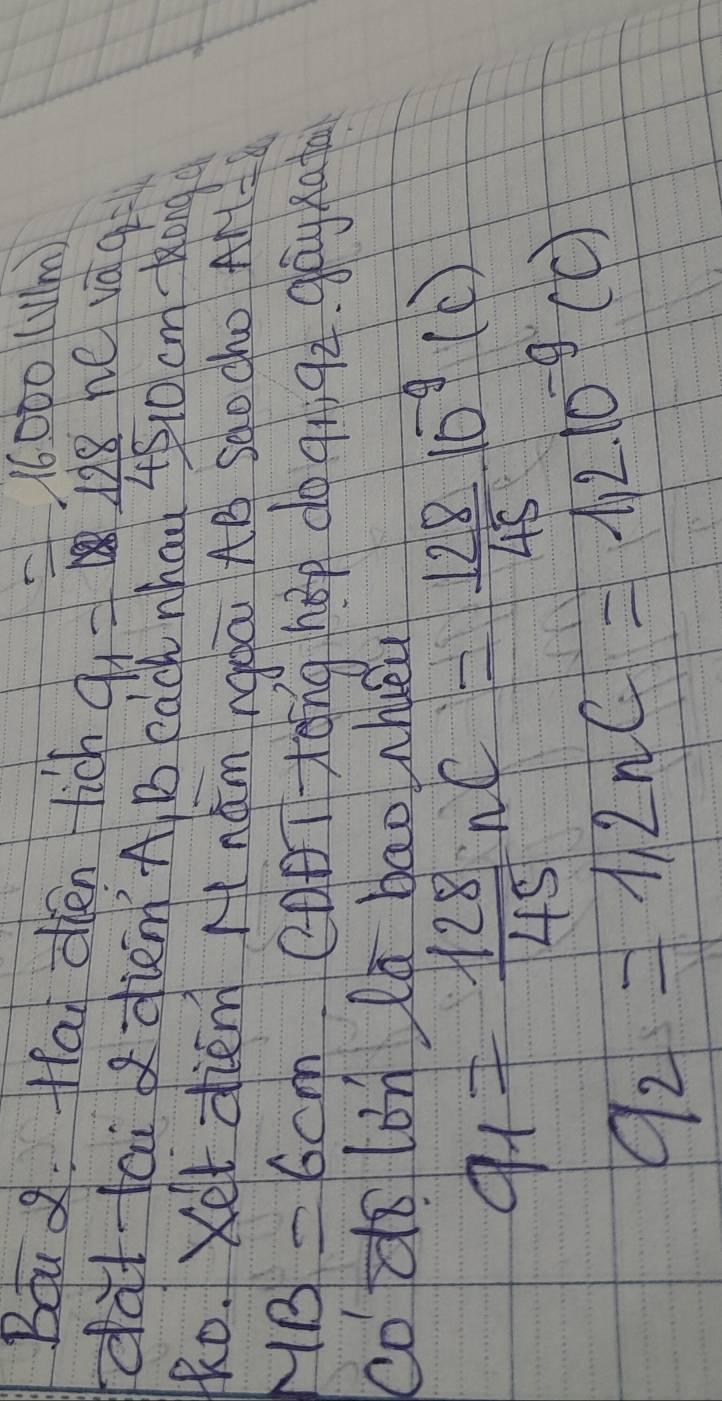 = 16000 (V/m)
Bài 2: Hai điện tích q1 = 128/45 nC và q2 =
đặt tại 2 điểm A, B cách nhau 10 cm trong
ko. Xét điểm M nằm ngoài AB sao cho AM =
MB = 6cm. CĐĐT tổng hợp do q1, q2 gây ra tại
có độ lớn là bao nhiêu
q1 = 128/45 nC = 128/45 10^-9 (C)
q2 = 1,2 nC = 1,2.10^-9 (C)